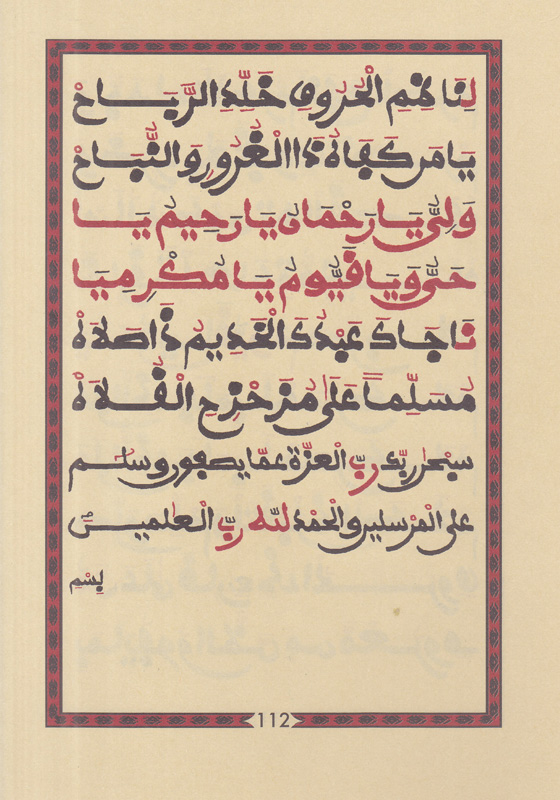 لِنَا نِعَمِ الْحُرُوفِ خَلِّدِ الرَّبَاحْ
يَا مَن كَفَانَا ذَا الْغُرُورِ وَالنُّبَاحْ
وَلِىَّ يَا رَحْمَانُ يَا رَحِيمُ يَا
حَىُّ وَيَا قَيُّومُ يَا مُكْرِمِيَا
نَاجَاكَ عَبْدُكَ الْخَدِيمُ ذَا صَلَاهْ
مُسَلِّماً عَلَى مُزَحْزِحِ الْفُلَاهْ
سبحن ربّك ربّ الْعزّة عمّا يصفون وسلم
على الْمرسلين والْحمْد لله ربّ الْعلمين
بِسْمِ
112